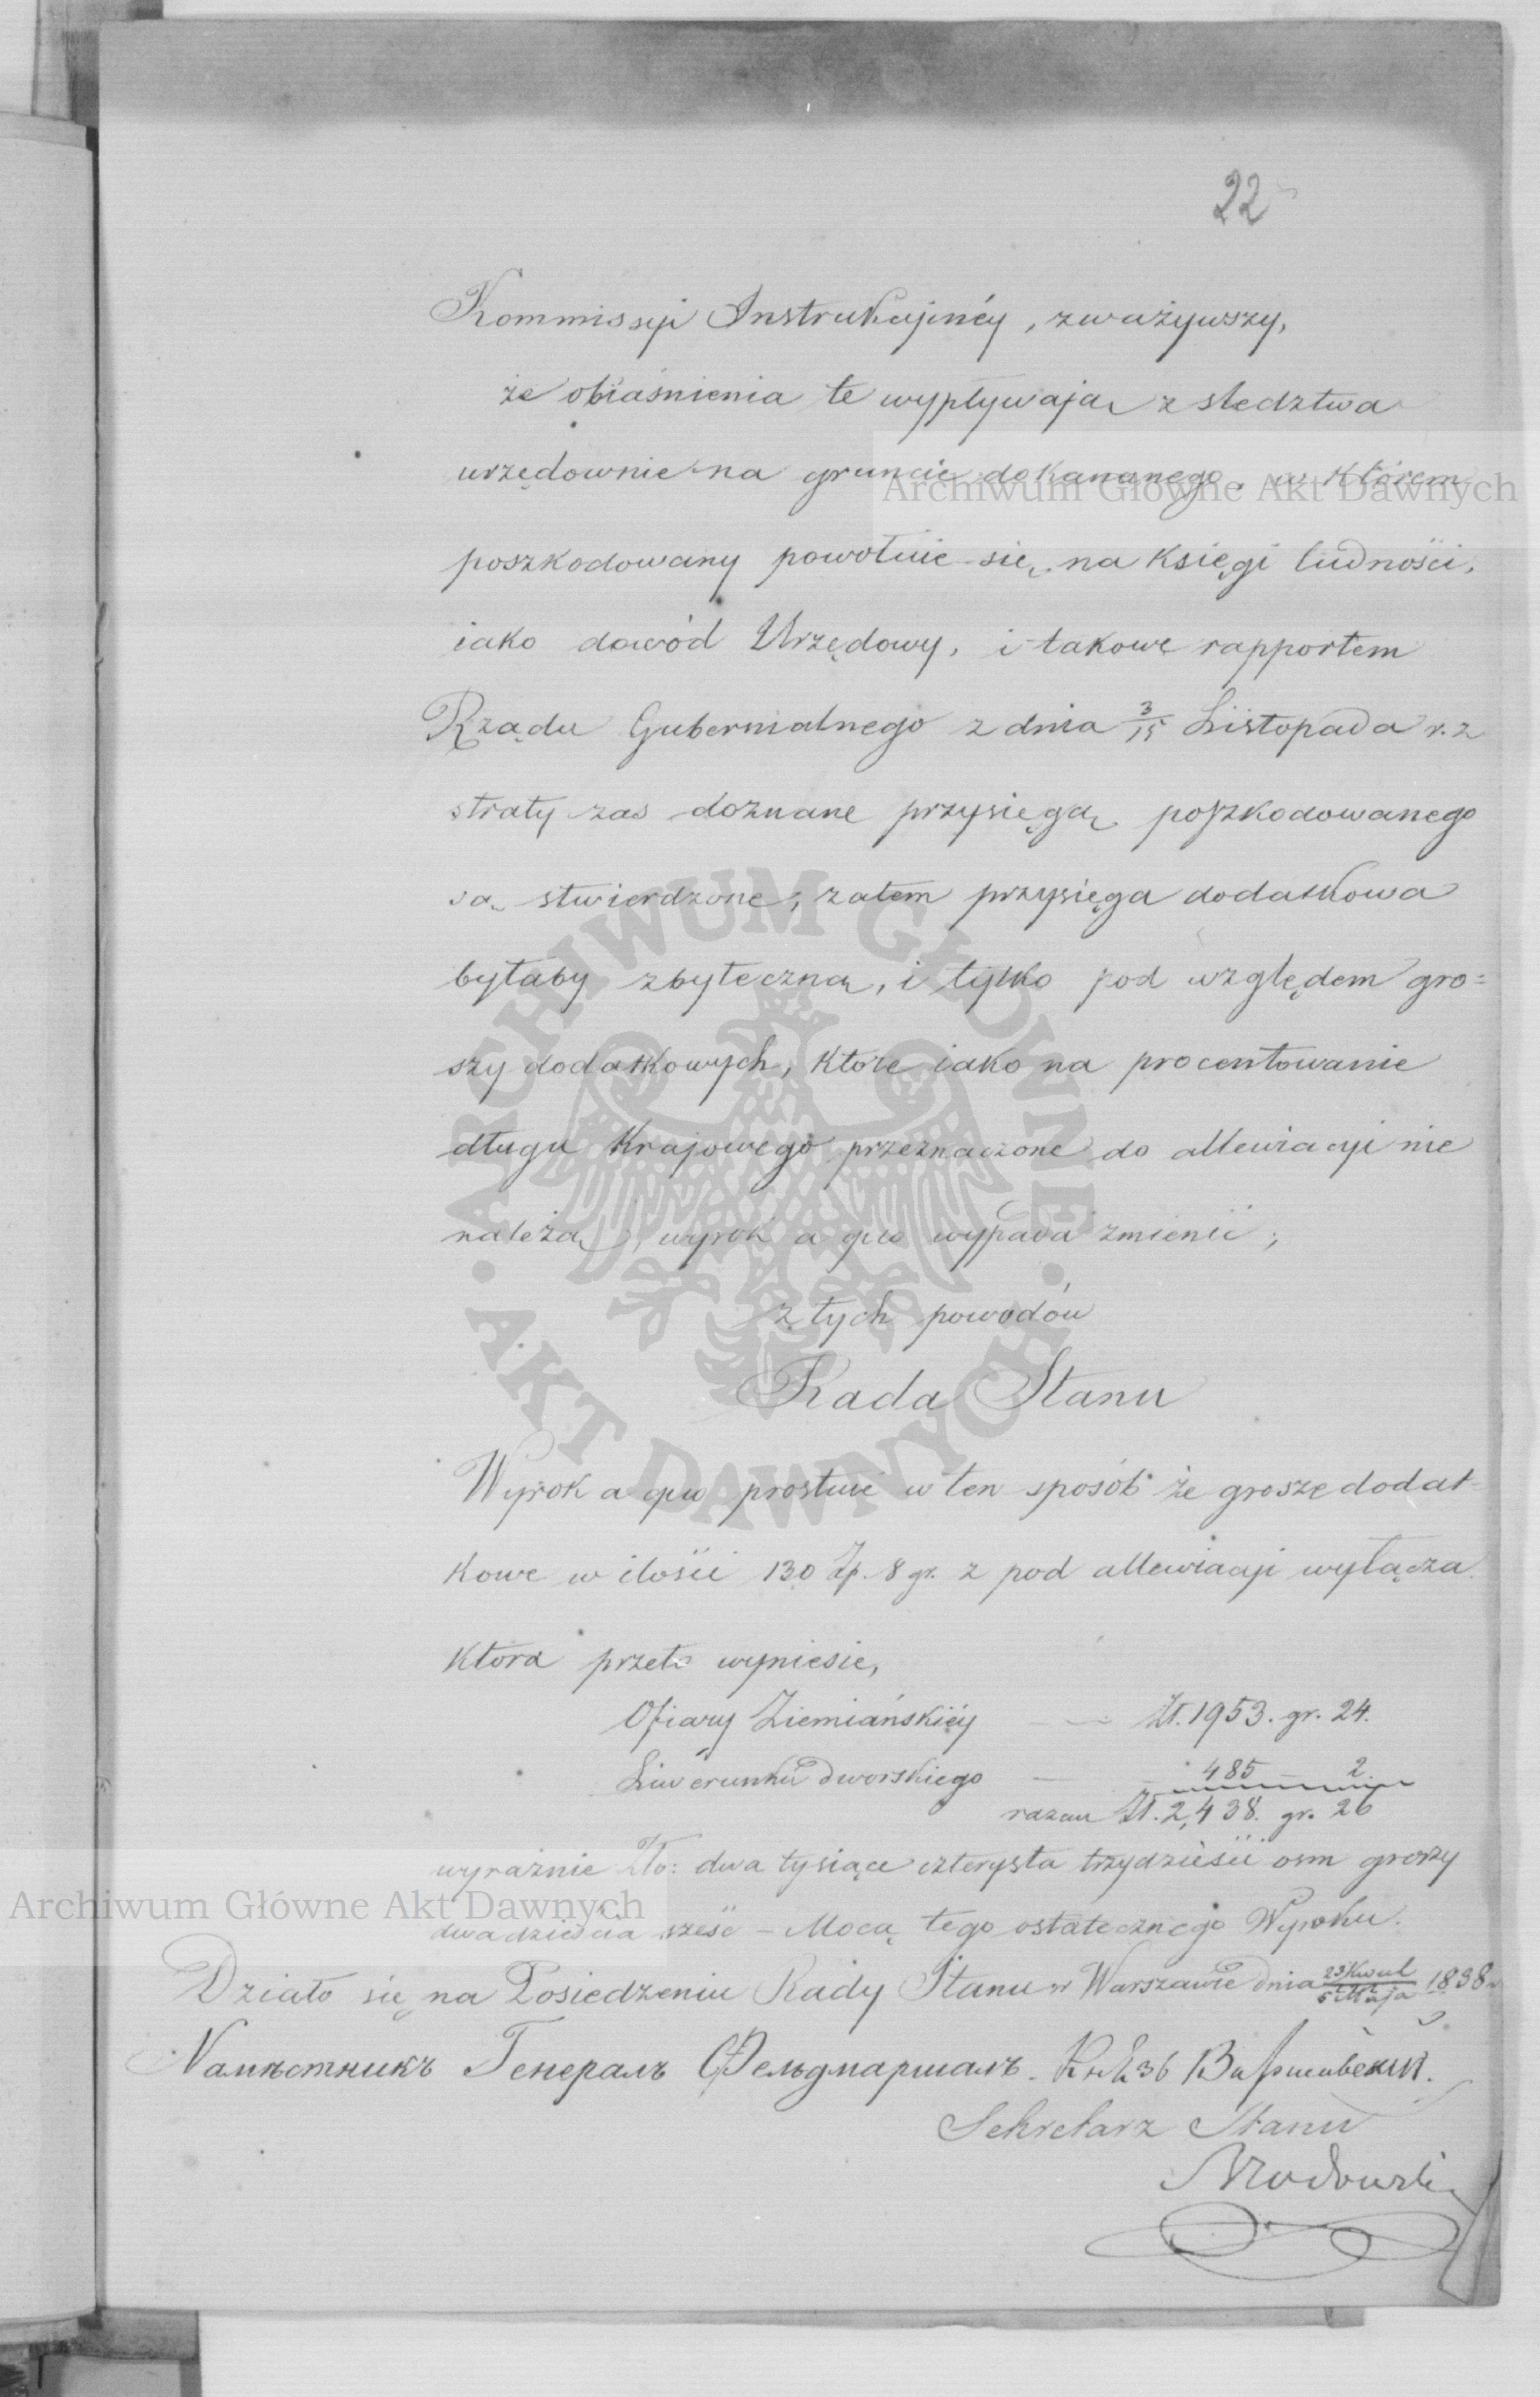 22
Kommissyi Instrukcyjnéy, zważywszy,
że obiaśnienia te wypływaią z sledztwa
urzędownie na gruncie dokonanego, w którem
poszkodowany powołuie się na księgi ludności,
iako dowód Urzędowy, i takowe rapportem
Rządu Gubernialnego z dnia 3/15 Listopada r. z
straty zas doznane przysięgą poszkodowanego
są stwierdzone, zatem przysięga dodatkowa
byłaby zbyteczną, i tylko pod względem gro=
szy dodatkowych, które iako na procentowanie
długu Krajowego przeznaczone do allewiacyi nie
należą, wyrok a quo wypada zmienić;
z tych powodów
Rada Stanu
Wyrok a quo prostuie w ten sposób że grosze dodat-
kowe w ilości 130 Zp. 8 gr. z pod allewiacyi wyłącza
która przeto wyniesie,
Ofiary Ziemiańskiéy — Zł. 1953. gr. 24.
Liwerunku dworskiego — 485 — 2.
razem Zł. 2,438. gr. 26
wyraźnie Zło: dwa tysiące czterysta trzydzieści osm groszy
dwadzieścia sześć – Mocą tego ostatecznego Wyroku.
Działo się na Posiedzeniu Rady Stanu w Warszawie dnia 23 Kwiet/5 Maja 1838 r
Намѣстникъ Генералъ Фельдмаршалъ. Князь Варшавскій.
Sekretarz Stanu
Archiwum Główne Akt Dawnych
ARCHIWUM GŁÓWNE
· AKT DAWNYCH ·
Archiwum Główne Akt Dawnych